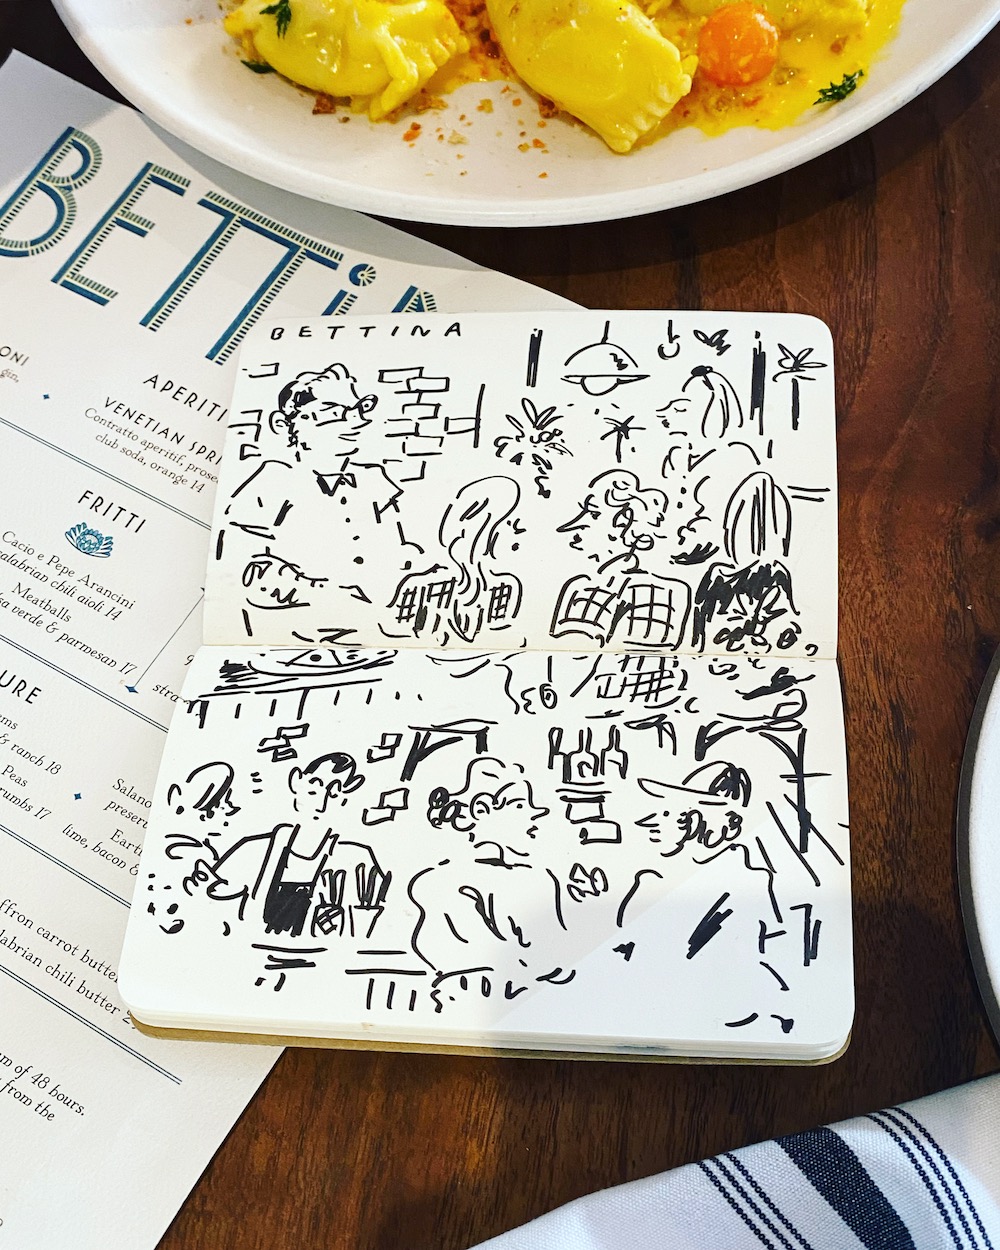 BETTINA
BETTINA
APERITI
VENETIAN SPRI
Contratto aperitif, prosec
club soda, orange 14
ONI
gin,
FRITTI
Cacio e Pepe Arancini
calabrian chili aioli 14
Meatballs
salsa verde & parmesan 17
stra
URE
ms
& ranch 18
Peas
rumbs 17
Salano
preserv
Eart
lime, bacon &
ffron carrot butter
labrian chili butter 2
um of 48 hours.
from the